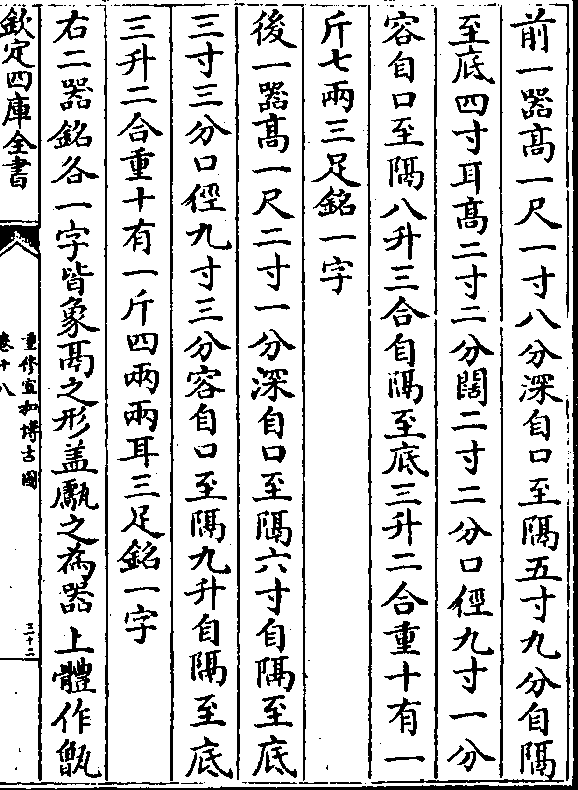 前一器髙一尺一寸八分深自口至隔五寸九分自隔
至底四寸耳髙二寸二分闊二寸二分口徑九寸一分
容自口至隔八升三合自隔至底三升二合重十有一
斤七兩三足銘一字
後一器髙一尺二寸一分深自口至隔六寸自隔至底
三寸三分口徑九寸三分容自口至隔九升自隔至底
三升二合重十有一斤四兩兩耳三足銘一字
右二器銘各一字皆象鬲之形盖甗之為器上體作甑
欽定四庫全書
重修宣和博古圖
卷十八
三十二